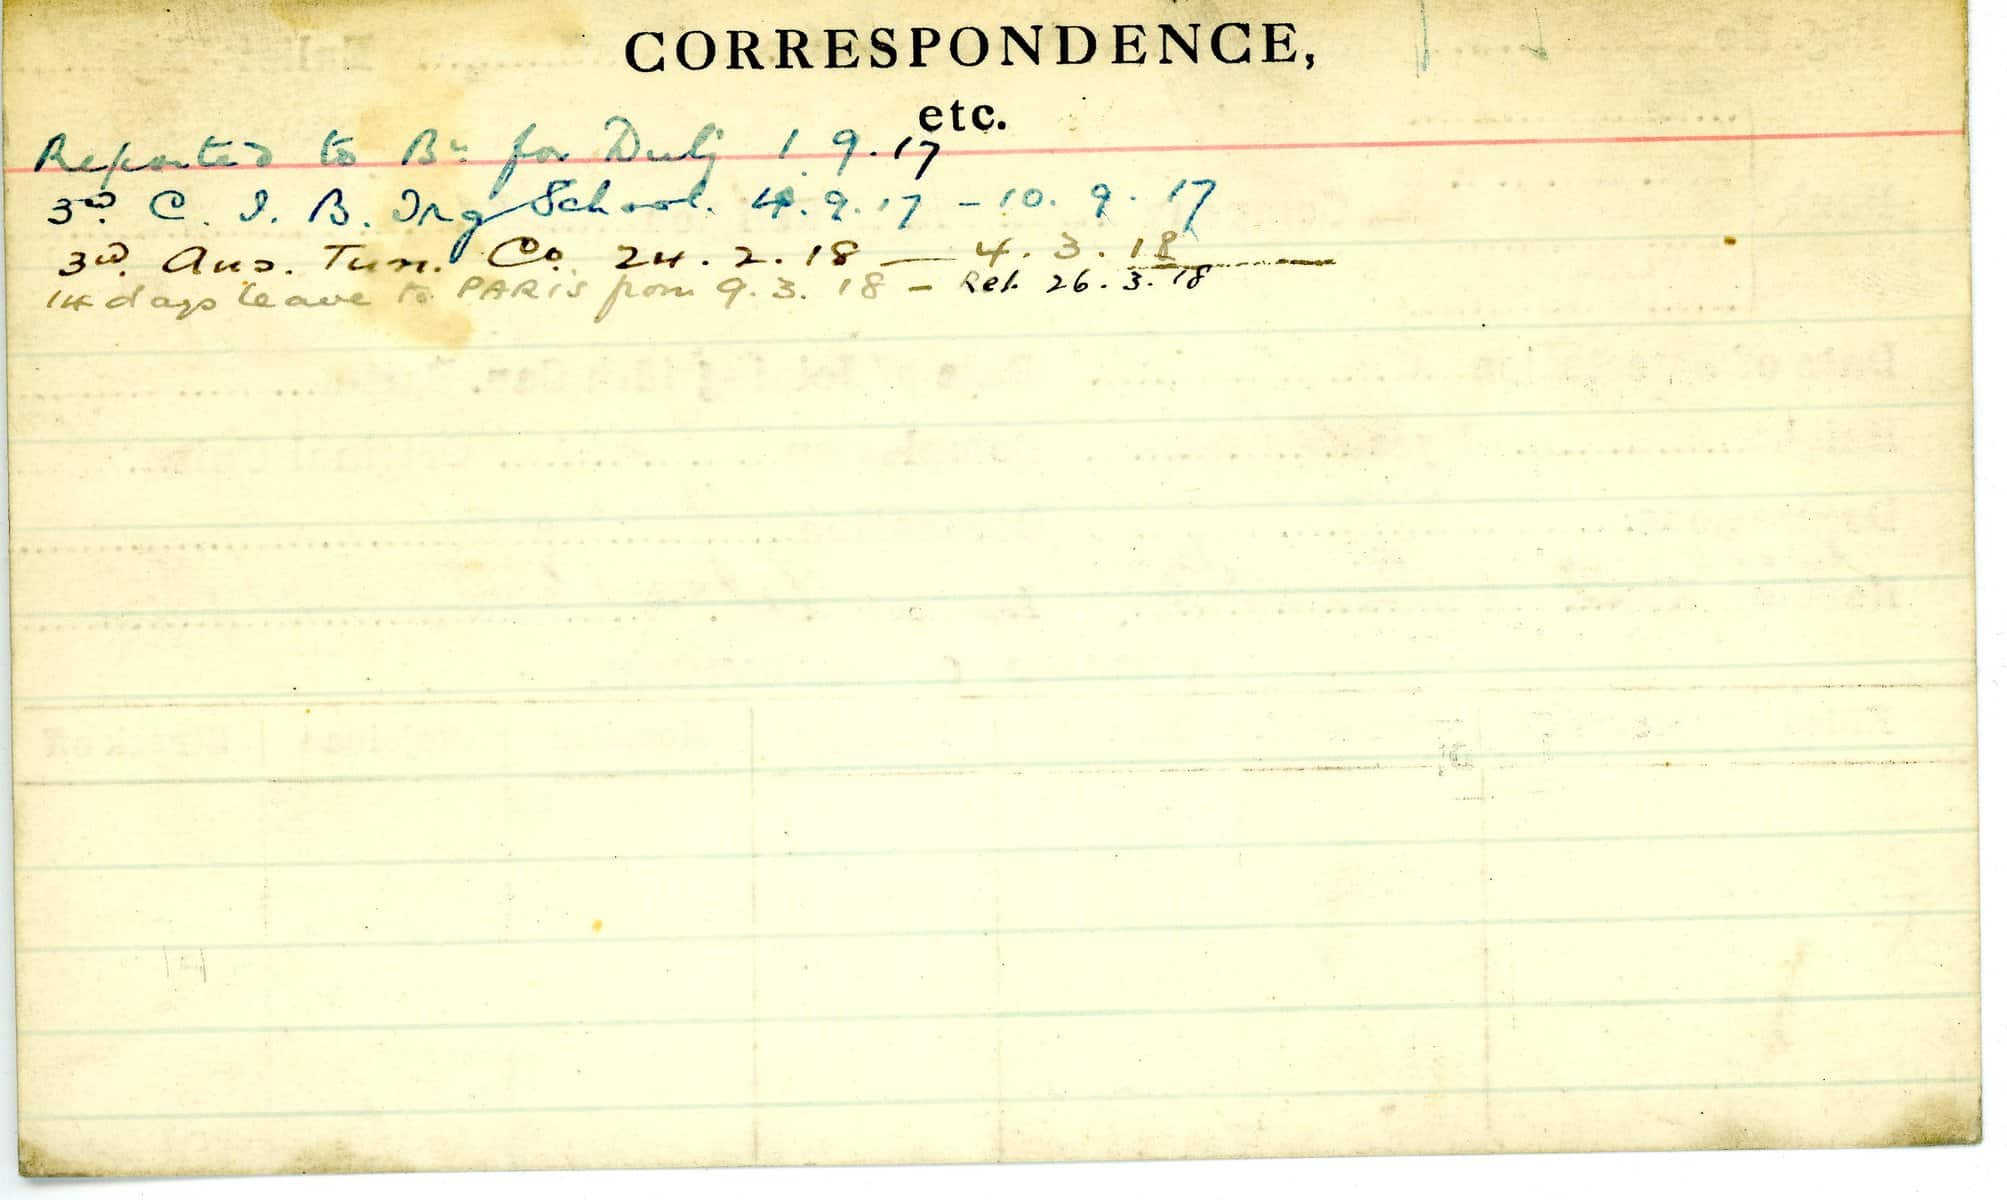 CORRESPONDENCE,
etc.
Reported to Bn. for Duty 1.9.17
3rd. C. I. B. Trg School. 4.9.17 – 10.9.17
3rd. Aus. Tun. Co. 24.2.18 — 4.3.18
14 days leave to PARIS from 9.3.18 – Ret. 26.3.18